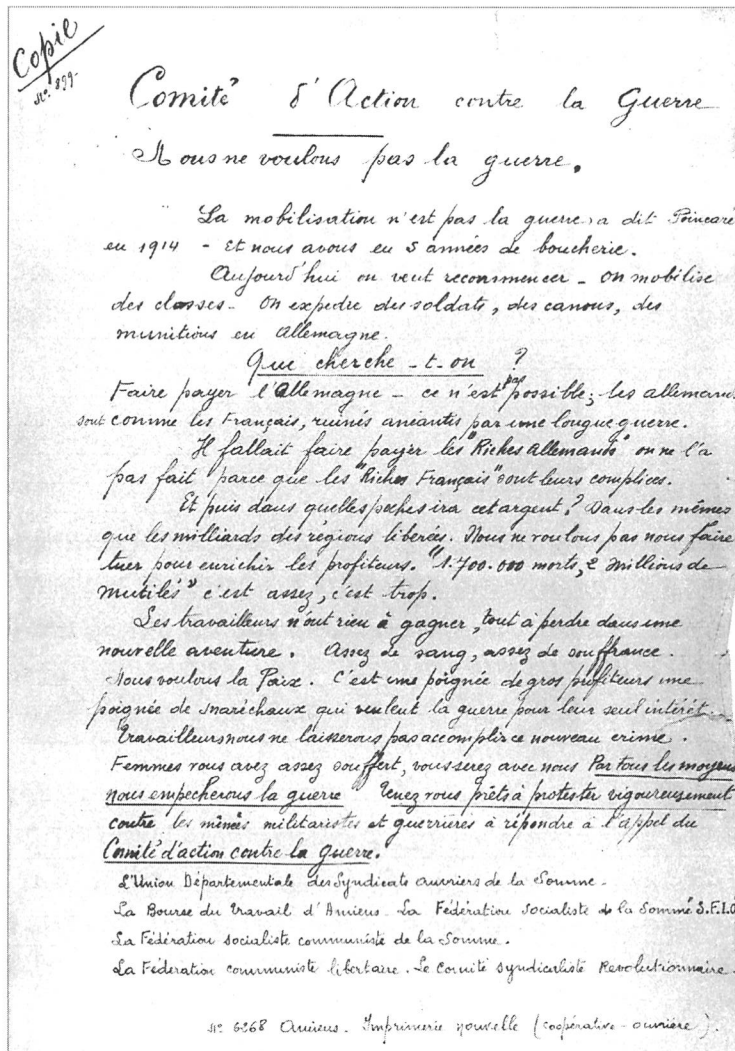 Copie
N° 899-
Comité d'Action contre la Guerre
Nous ne voulons pas la guerre.
La mobilisation n'est pas la guerre, a dit Poincaré
en 1914 - Et nous avons eu 5 années de boucherie.
Aujourd'hui on veut recommencer - On mobilise
des classes - On expedre des soldats, des canons, des
munitions en Allemagne.
Qui cherche-t-on ?
Faire payer l'Allemagne - ce n'est pas possible; les allemands
sont comme les Français, ruinés anéantis par une longue guerre.
Il fallait faire payer les "Riches Allemands" on ne l'a
pas fait parce que les "Riches Français" sont leurs complices.
Et puis dans quelles poches ira cet argent ? Dans les mêmes
que les milliards des régions libérées. Nous ne voulons pas nous faire
tuer pour enrichir les profiteurs. "1.700.000 morts, 2 millions de
mutilés" c'est assez, c'est trop.
Les travailleurs n'ont rien à gagner, tout à perdre dans une
nouvelle aventure. Assez de sang, assez de souffrance.
Nous voulons la Paix. C'est une poignée de gros profiteurs une
poignée de maréchaux qui veulent la guerre pour leur seul intérêt.
Travailleurs nous ne laisserons pas accomplir ce nouveau crime.
Femmes vous avez assez souffert, vous serez avec nous Par tous les moyens
nous empecherons la guerre Tenez vous prêts à protester vigoureusement
contre les menés militaristes et guerrières à répondre à l'appel du
Comité d'action contre la guerre.
L'Union Départementale des Syndicats ouvriers de la Somme.
La Bourse du Travail d'Amiens. La Fédération Socialiste de la Somme S.F.I.O
La Fédération socialiste communiste de la Somme.
La Fédération communiste libertaire. Le Comité syndicaliste Revolutionnaire.
N° 6268 Amiens. Imprimerie nouvelle (coopérative-ouvrière).